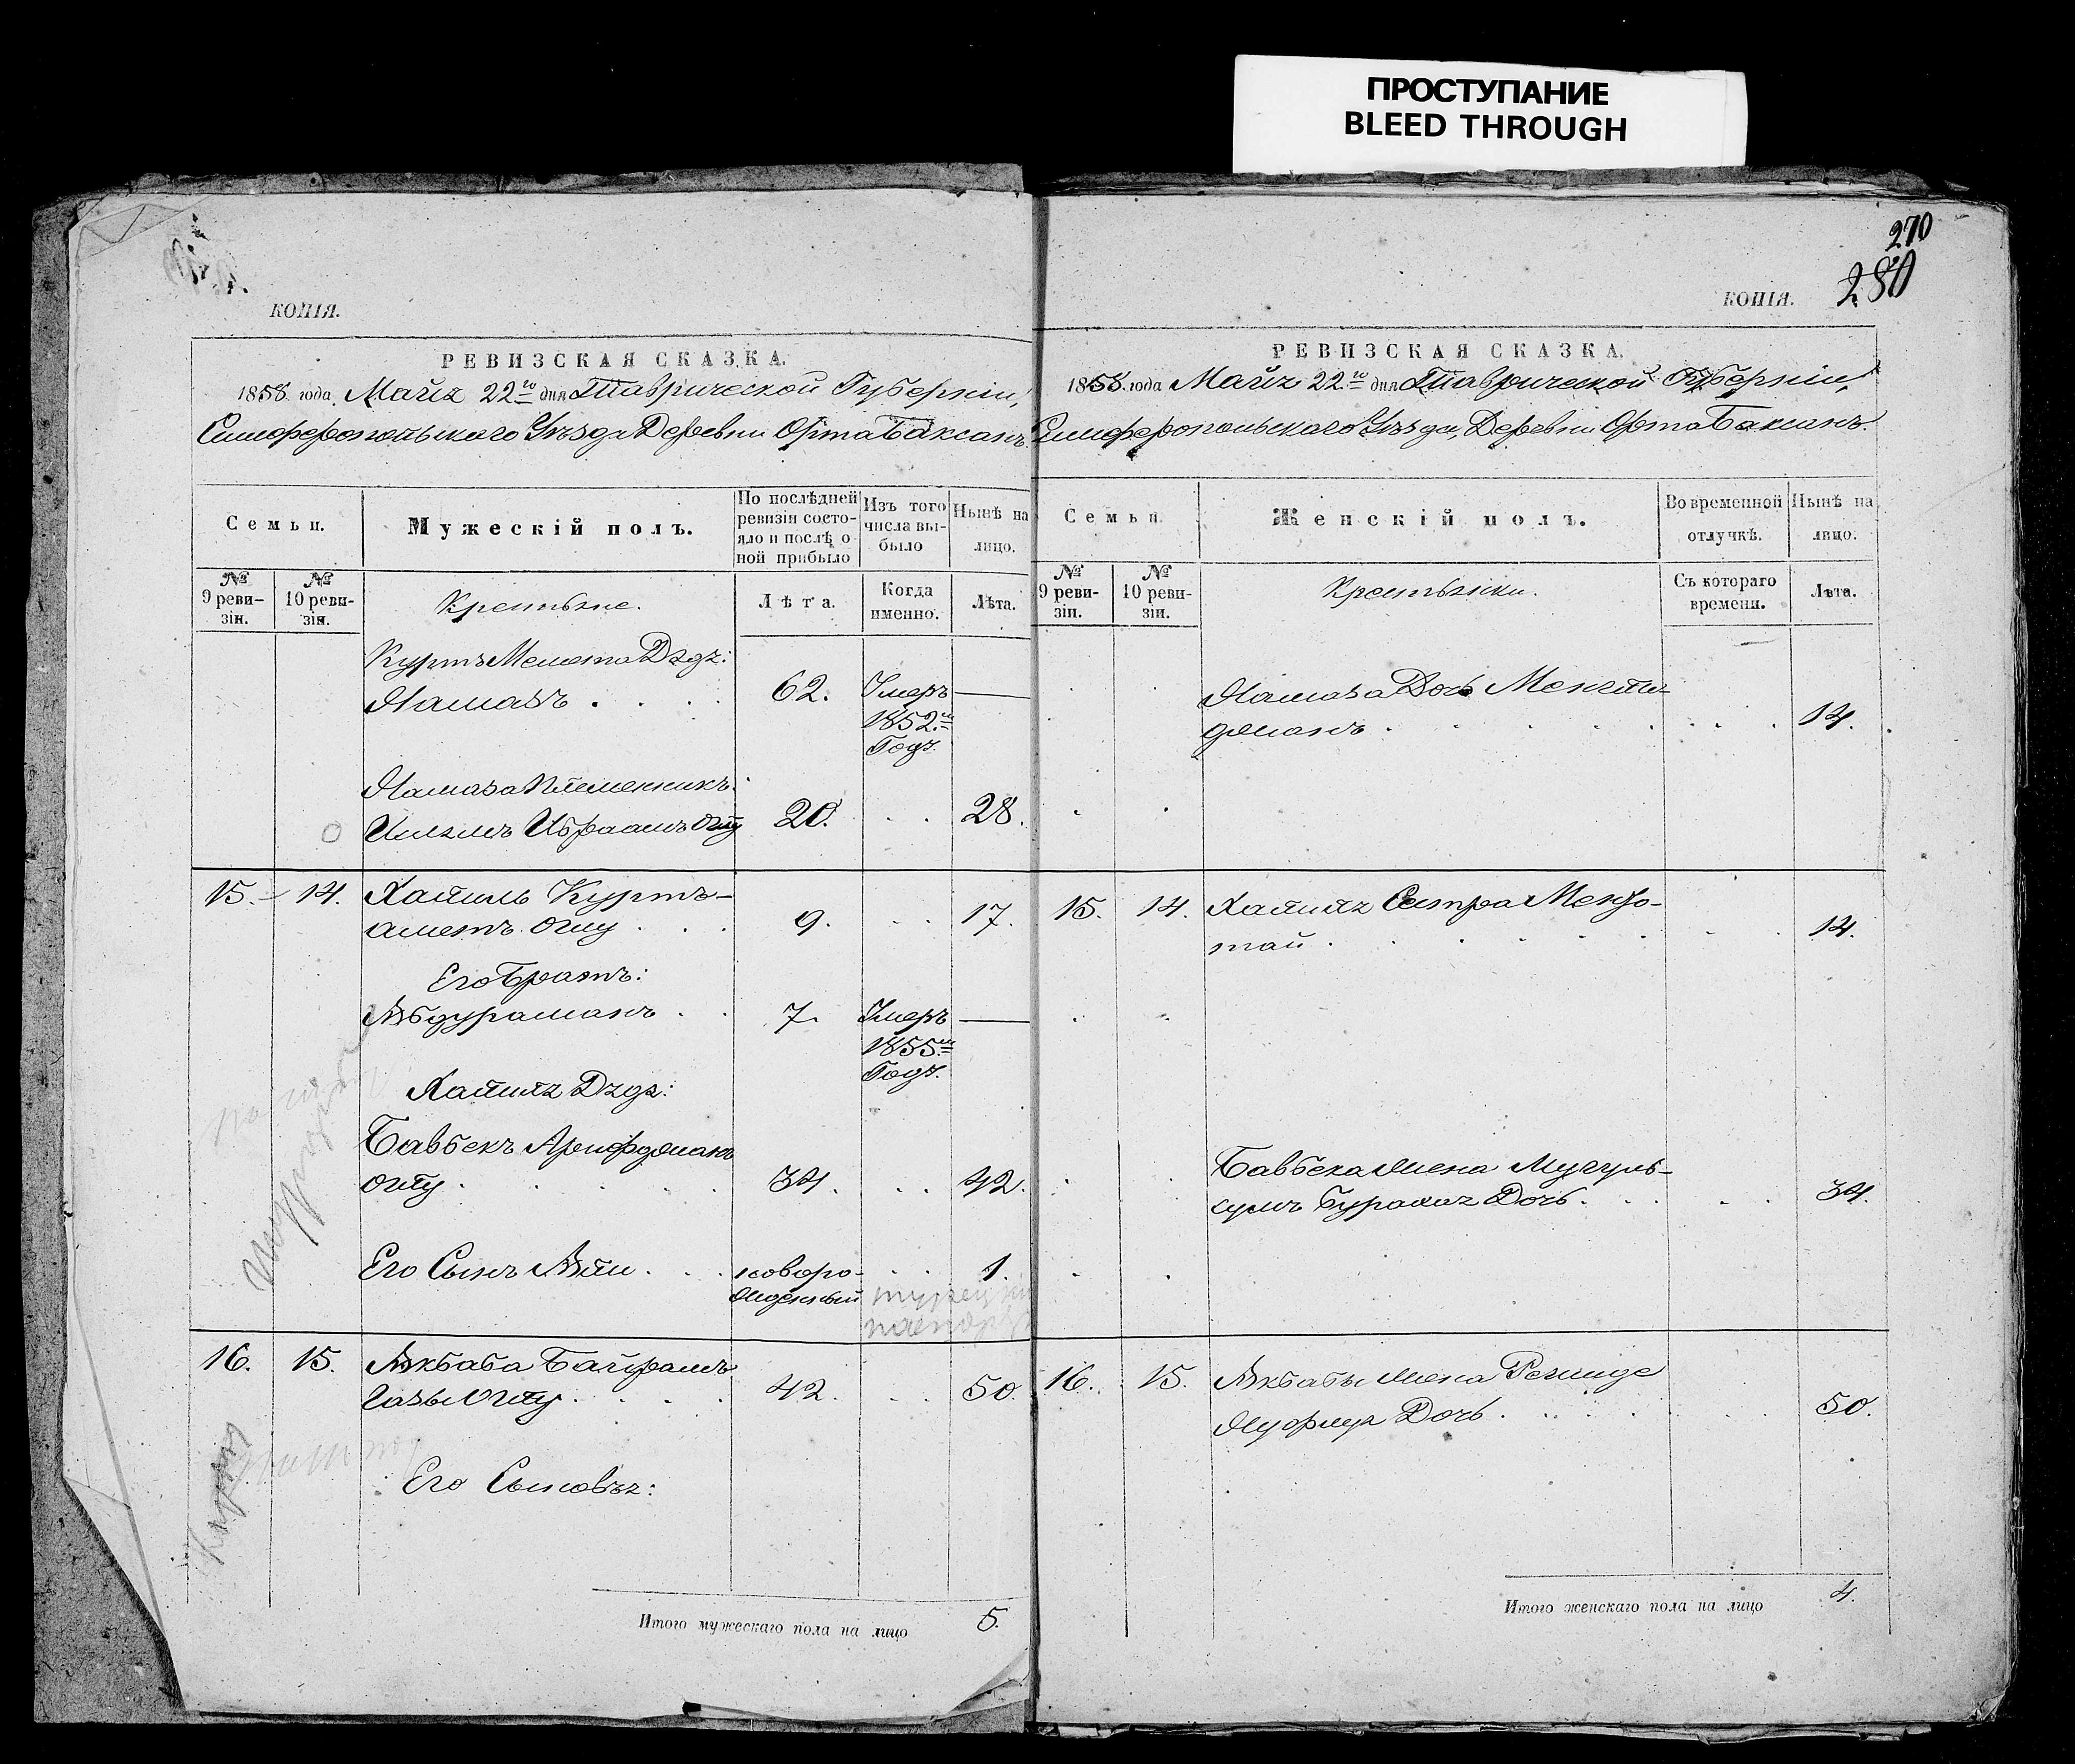 ПРОСТУПАНИЕ
BLEED THROUGH
КОПІЯ.
РЕВИЗСКАЯ СКАЗКА.
1858 года Маія 22го дня Таврической Губерніи,
Симферопольскаго Уѣзда Деревни Орта Баксанъ
Семьи.
Мужескій полъ.
По послѣдней ревизіи состояло и послѣ оной прибыло
Изъ того числа выбыло
Нынѣ на лицо.
№ 9 ревизіи.
№ 10 ревизіи.
Крестьяне.
Лѣта.
Когда именно.
Лѣта.
Куртъ Мемета Дядя:
Намазъ . . . . 62. Умеръ —
1852го
Года.
Намаза Племянникъ:
Исмаилъ Ибраамъ Оглу 20. . . 28.
15. 14. Халиль Куртъ-
аметъ Оглу . . . 9. . . 17.
Его Братъ:
Абдураманъ . . 7. Умеръ —
1855го
Года.
Халиля Дядя:
Бавбекъ Арифджанъ
Оглу . . . . . 34. . . 42.
Его Сынъ Али . . . новоро- . . 1.
жденный
турецкій
паспортъ
16. 15. Акбаба Байрамъ
Газы Оглу . . . . 42. . . 50.
Его Сыновья:
Итого мужескаго пола на лицо 5.
270
280
КОПІЯ.
РЕВИЗСКАЯ СКАЗКА.
1858 года Маія 22го дня Таврической Губерніи,
Симферопольскаго Уѣзда, Деревни Орта Баксанъ.
Семьи.
Женскій полъ.
Во временной отлучкѣ.
Нынѣ на лицо.
№ 9 ревизіи.
№ 10 ревизіи.
Крестьянки.
Съ котораго времени.
Лѣта.
Намаза Дочь Менгли-
джанъ . . . . . . . . 14.
15. 14. Халиля Сестра
тай . . . . . . . . 14.
Бавбека жена
Дочь . . . . 34.
16. 15. Акбабы жена
Дочь . . . . . . 50.
Итого женскаго пола на лицо 4.